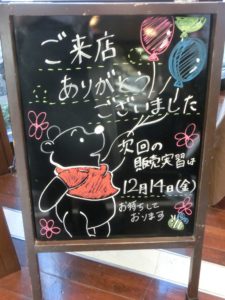 ご来店
ありがとう
ございました
次回の
販売実習は
12月14日(金)
お待ちして
おります